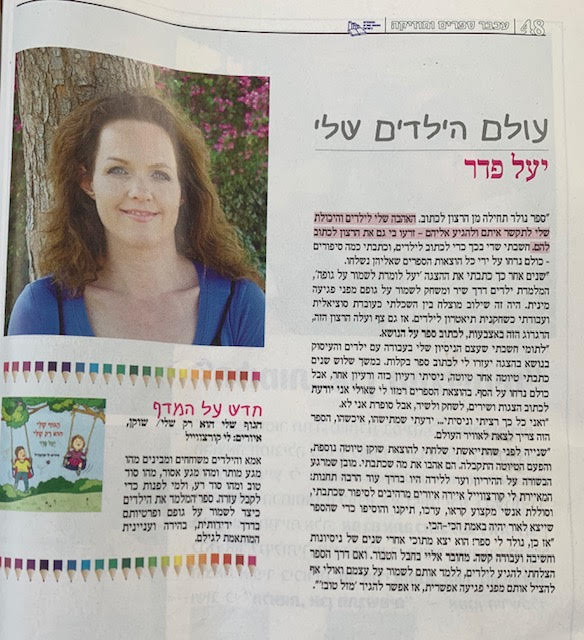 48 | עכבר ספרים ומוזיקה
עולם הילדים שלי
יעל פדר
"ספר נולד תחילה מן הרצון לכתוב. האהבה שלי לילדים והיכולת
שלי לתקשר איתם ולהגיע אליהם - זרעו בי גם את הרצון לכתוב
להם. חשבתי שדי בכך כדי לכתוב לילדים, וכתבתי כמה סיפורים
- כולם נדחו על ידי כל הוצאות הספרים שאליהן נשלחו.
"שנים אחר כך כתבתי את ההצגה 'יעל לומדת לשמור על גופה',
המלמדת ילדים דרך שיר ומשחק לשמור על גופם מפני פגיעה
מינית. היה זה שילוב מוצלח בין השכלתי כעובדת סוציאלית
ועבודתי כשחקנית תיאטרון לילדים. אז גם צף ועלה הרצון הזה,
הדגדוג הזה באצבעות, לכתוב ספר על הנושא.
"לתומי חשבתי שעצם הניסיון שלי בעבודה עם ילדים והעיסוק
בנושא בהצגה יעזרו לי לכתוב ספר בקלות. במשך שלוש שנים
כתבתי טיוטה אחר טיוטה, ניסיתי רעיון כזה ורעיון אחר, אבל
כולם נדחו על הסף. בהוצאת הספרים רמזו לי שאולי אני יודעת
לכתוב הצגות ושירים, לשחק ולשיר, אבל סופרת אני לא.
"ואני כל כך רציתי וניסיתי... ידעתי שמתישהו, איכשהו, הספר
הזה צריך לצאת לאוויר העולם.
"שנייה לפני שהתייאשתי שלחתי להוצאת שוקן טיוטה נוספת,
והפעם הטיוטה התקבלה. הם אהבו את מה שכתבתי. מובן שמרגע
הבשורה על ההיריון ועד ללידה היו בדרך עוד הרבה תחנות:
המאיירת לי קורצווייל איירה איורים מרהיבים לסיפור שכתבתי,
וסוללת אנשי מקצוע קראו, ערכו, תיקנו והוסיפו כדי שהספר
שייצא לאור יהיה באמת הכי-הכי.
"אז כן, נולד לי ספר: הוא יצא מתוכי אחרי שנים של ניסיונות
וחשיבה ועבודה קשה. מחובר אליי בחבל הטבור. ואם דרך הספר
הצלחתי להגיע לילדים, ללמד אותם לשמור על עצמם ואולי אף
להציל אותם מפני פגיעה אפשרית, אז אפשר להגיד 'מזל טוב'".
חדש על המדף
הגוף שלי הוא רק שלי/ שוקן,
איורים: לי קורצווייל
אמא והילדים משוחחים ומבינים מהו
מגע מותר ומהו מגע אסור, מהו סוד
טוב ומהו סוד רע, ולמי לפנות כדי
לקבל עזרה. ספר המלמד את הילדים
כיצד לשמור על גופם ופרטיותם
בדרך ידידותית, בהירה ועניינית
המותאמת לגילם.
הגוף שלי
הוא רק שלי
יעל פדר